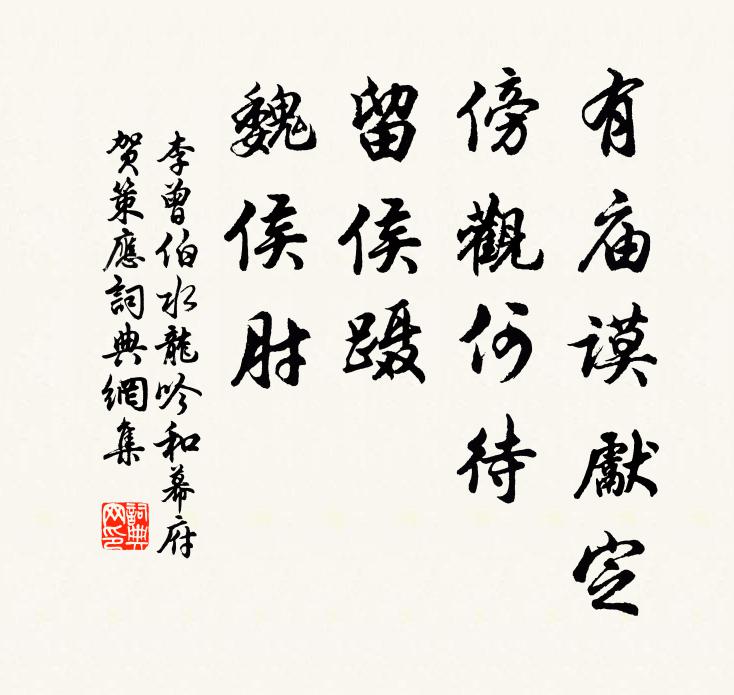 有庙谟獻定
傍觀何待
留侯蹑
魏侯肘
李曾伯水龍吟和幕府
贺策應詞典網集
詞典网印